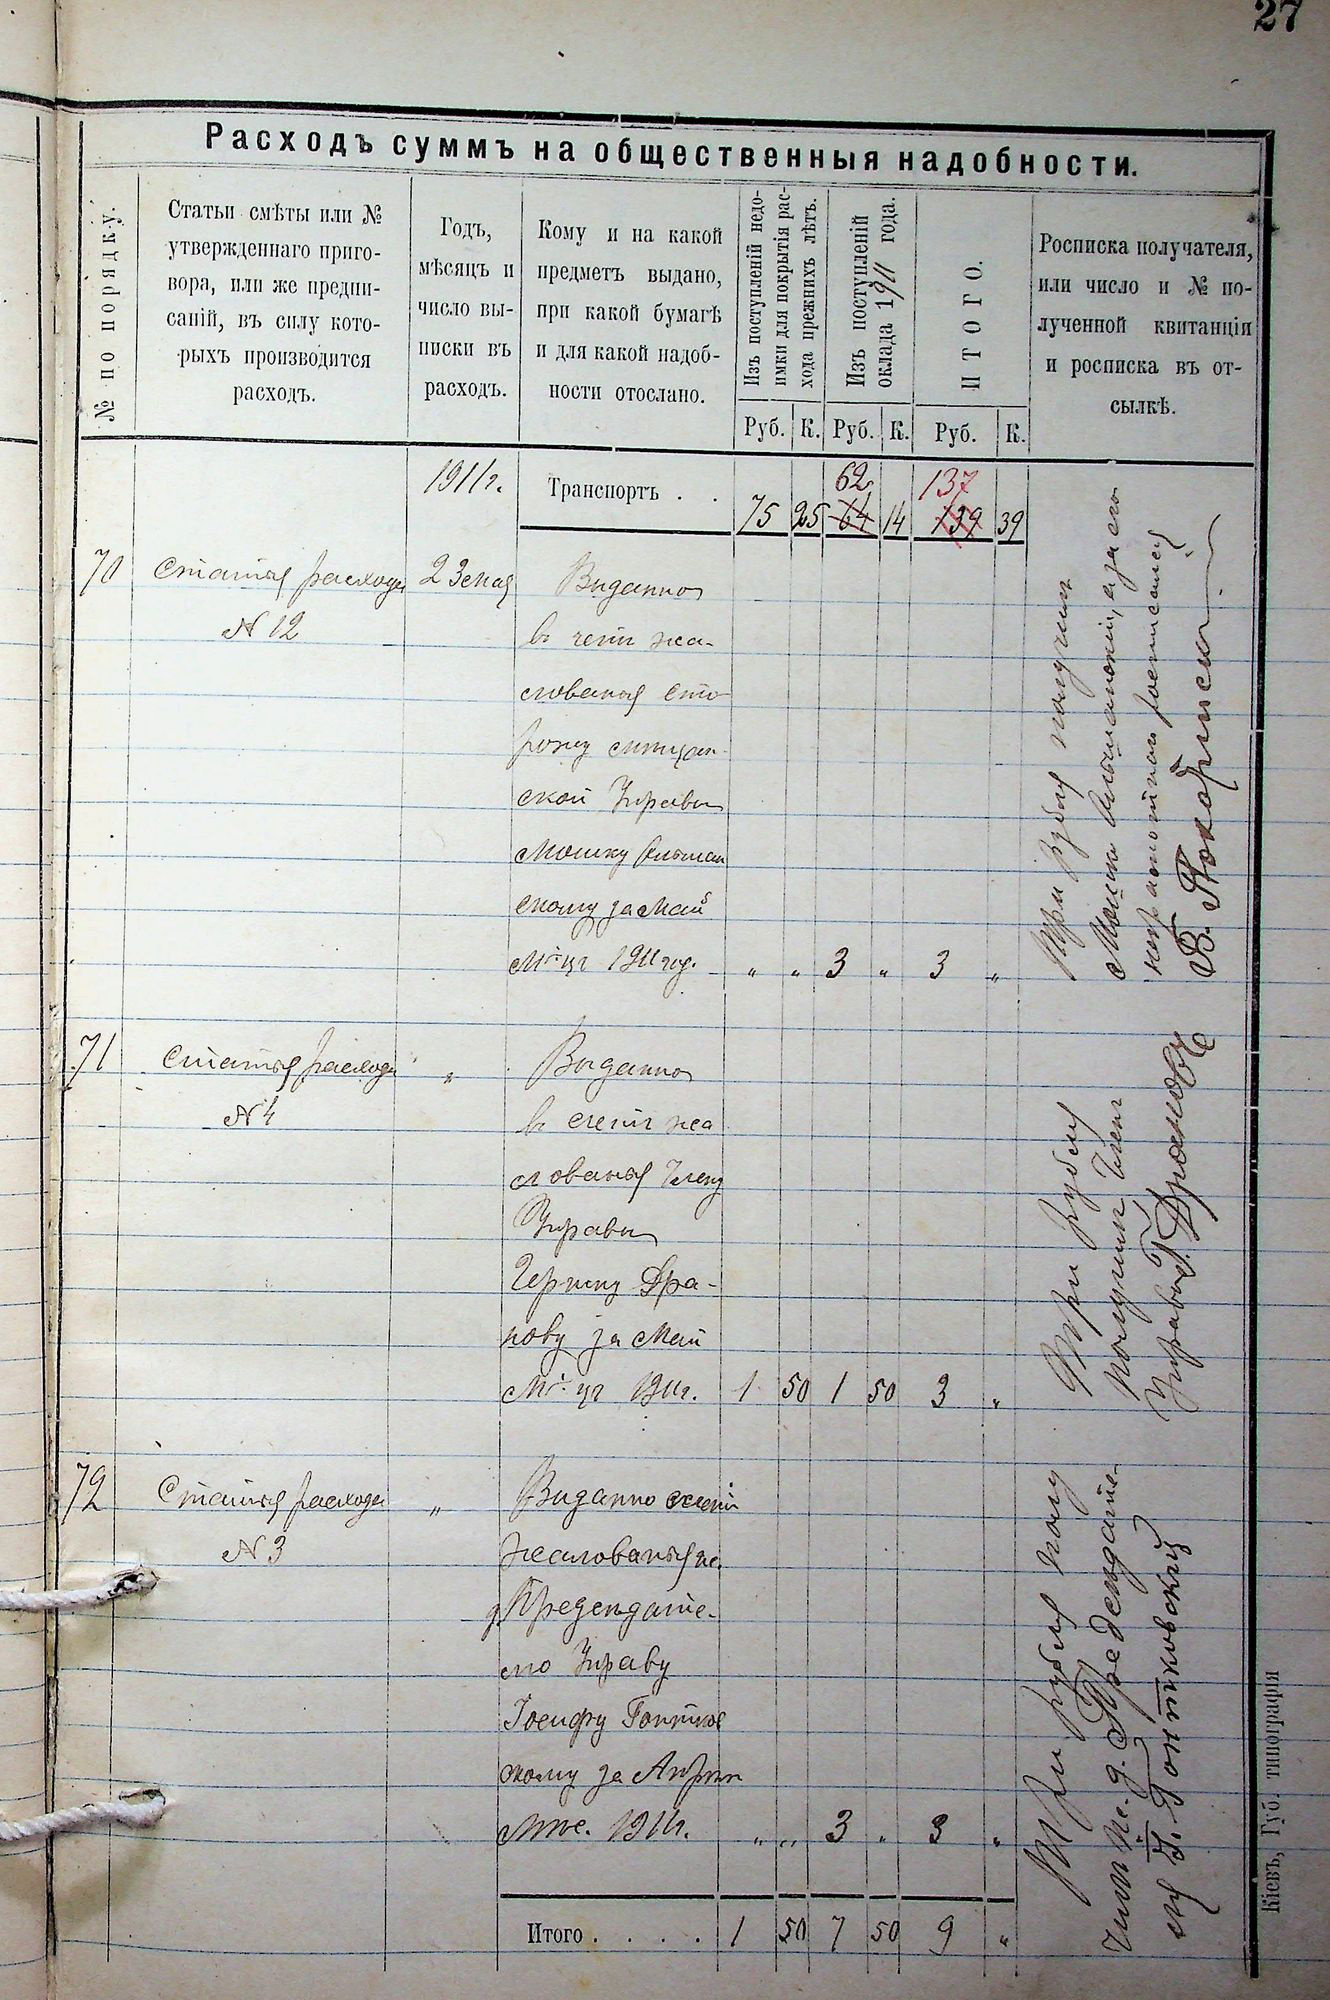 27
Расходъ суммъ на общественныя надобности.
№ по порядку.
Статьи смѣты или №
утвержденнаго приго-
вора, или же предпи-
саній, въ силу кото-
рыхъ производится
расходъ.
Годъ,
мѣсяцъ и
число вы-
писки въ
расходъ.
Кому и на какой
предметъ выдано,
при какой бумагѣ
и для какой надоб-
ности отослано.
Изъ поступленій недо-
имки для покрытія рас-
хода прежнихъ лѣтъ.
Изъ поступленій
оклада 1911 года.
ИТОГО.
Росписка получателя,
или число и № по-
лученной квитанціи
и росписка въ от-
сылкѣ.
Руб. К. Руб. К. Руб. К.
62 137
1911г. Транспортъ . . 75 25 64 14 139 39
70 Статья расхода 23 мая Выданно
№ 12 въ четъ жа-
лованья сто-
рожу
ской Управы
Мошку
скому за Май
М-цъ 1911 год. " " 3 " 3 "
Три рубля получилъ
Мошко а за его
неграмотного росписался
В. Покорписки
71 Статья расхода " Выданно
№ 4 въ счетъ жа
лованья Члену
Управы
Гершку Дра-
нову за Май
М-цъ 1911г. 1 50 1 50 3 "
Три рубля
получилъ Членъ
Управы Г. Драновъ
72 Статья расхода " Выданно счетъ
№ 3 жалованья и.
д. Председате-
лю Управы
Іосифу
скому за Апрель
1911г. " " 3 " 3 "
Три рубля полу
чилъ и. д. Председате-
ля І. Гонтковский
Итого . . . . 1 50 7 50 9 "
Кіевъ, Губ. типографія